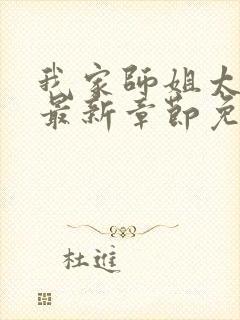 我家师姐太
最新章节免
杜進